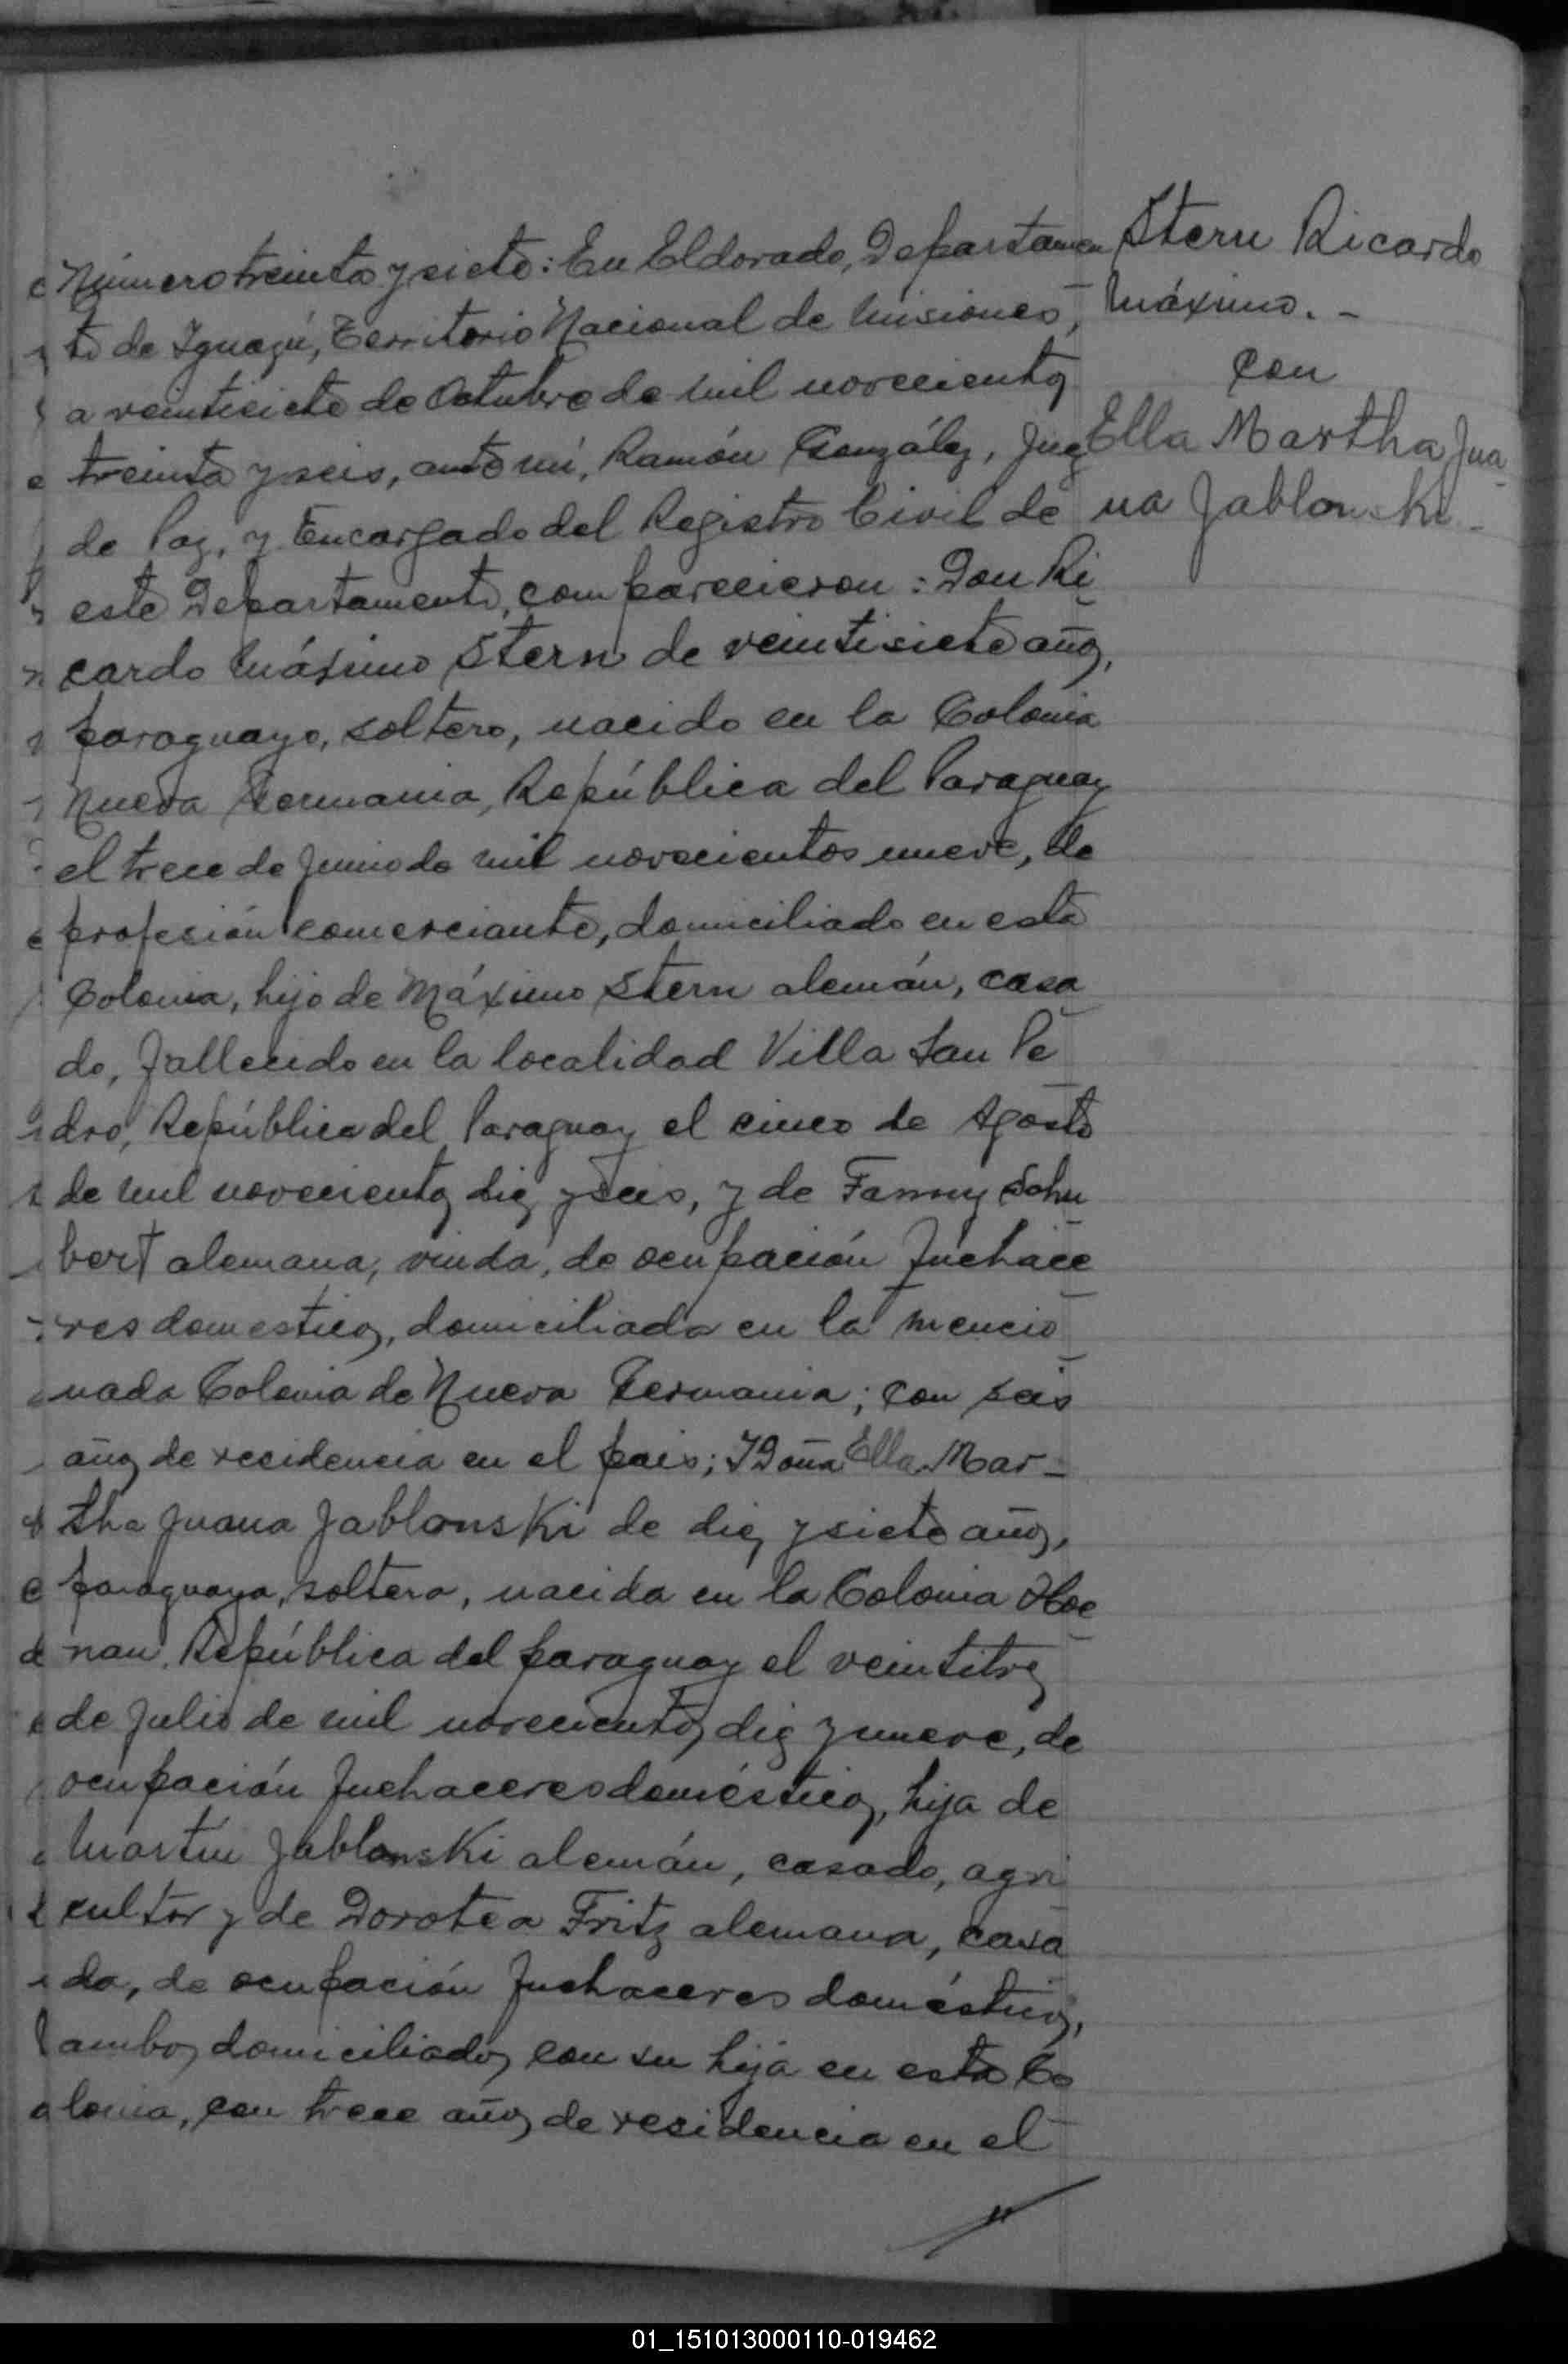 Número treinta y siete: En Eldorado, Departamen
to de Iguazú, Territorio Nacional de Misiones,
a veintisiete de Octubre de mil novecientos
treinta y seis, ante mí, Ramón González, Juez
de Paz, y Encargado del Registro Civil de
este Departamento, comparecieron: Don Ri
cardo Máximo Stern de veintisiete años,
paraguayo, soltero, nacido en la Colonia
Nueva Germania, República del Paraguay
el trece de Junio de mil novecientos nueve, de
profesión comerciante, domiciliado en esta
Colonia, hijo de Máximo Stern alemán, casa
do, fallecido en la localidad Villa San Pe
dro, República del Paraguay el cinco de Agosto
de mil novecientos diez y seis, y de Fanny Schu
bert alemana, viuda, de ocupación quehace
res domesticos, domiciliada en la mencio
nada Colonia de Nueva Germania; con seis
años de residencia en el pais; Y Doña Ella Mar-
tha Juana Jablonski de diez y siete años,
paraguaya, soltera, nacida en la Colonia Hoe
nau, República del paraguay el veintitres
de Julio de mil novecientos diez y nueve, de
ocupación quehaceres domésticos, hija de
Martín Jablonski alemán, casado, agri
cultor y de Dorotea Fritz alemana, casa
da, de ocupación quehaceres domésticos,
ambos domiciliados con su hija en esta Co
lonia, con trece años de residencia en el
Stern Ricardo
Máximo. -
con
Ella Martha Jua
na Jablonski -
01_151013000110-019462